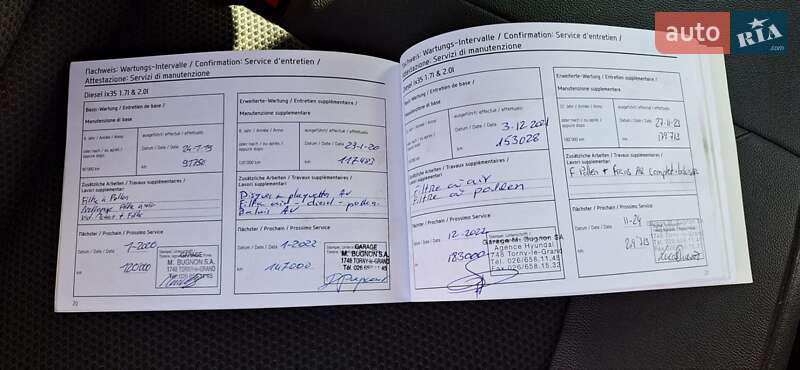 auto RIA
Nachweis: Wartungs-Intervalle / Confirmation: Service d'entretien /
Attestazione: Servizi di manutenzione
Diesel ix35 1.7l & 2.0l
Basis-Wartung / Entretien de base /
Manutenzione di base
ausgeführt / effectué / effettuato
Datum / Date / Data 24-1-19
km 91756
Zusätzliche Arbeiten / Travaux supplémentaires /
Lavori supplementari
Filtre à Pollen
Nächster / Prochain / Prossimo Service
Datum / Date / Data 1-2020
km 120'000
GARAGE
M. BUGNON S.A.
1748 TORNY-le-GRAND
20
Erweiterte-Wartung / Entretien supplémentaire /
Manutenzione supplementare
ausgeführt / effectué / effettuato
Datum / Date / Data 23-1-20
km 117'483
Zusätzliche Arbeiten / Travaux supplémentaires /
Lavori supplementari
Disques + plaquettes AV
Filtre air - diesel - pollen
Balais AV
Nächster / Prochain / Prossimo Service
Datum / Date / Data 1-2022
km 147000
GARAGE
M. BUGNON S.A.
1748 TORNY-le-GRAND
Tél. 026/658 11 45
Nachweis: Wartungs-Intervalle / Confirmation: Service d'entretien /
Attestazione: Servizi di manutenzione
Diesel ix35 1.7l & 2.0l
Basis-Wartung / Entretien de base /
Manutenzione di base
ausgeführt / effectué / effettuato
Datum / Date / Data 3-12.2021
km 153028
Zusätzliche Arbeiten / Travaux supplémentaires /
Lavori supplementari
Filtre à air
Filtre à pollen
Nächster / Prochain / Prossimo Service
Datum / Date / Data 12.2022
km 183000
Garage M. Bugnon SA
Agence Hyundai
1748 Torny-le-Grand
Tél. 026/658.11.45
Fax 026/658.15.33
Erweiterte-Wartung / Entretien supplémentaire /
Manutenzione supplementare
ausgeführt / effectué / effettuato
Datum / Date / Data 27-11-23
km
Zusätzliche Arbeiten / Travaux supplémentaires /
Lavori supplementari
F Pollen + Freins AR
Nächster / Prochain / Prossimo Service
Datum / Date / Data 11-24
km
21